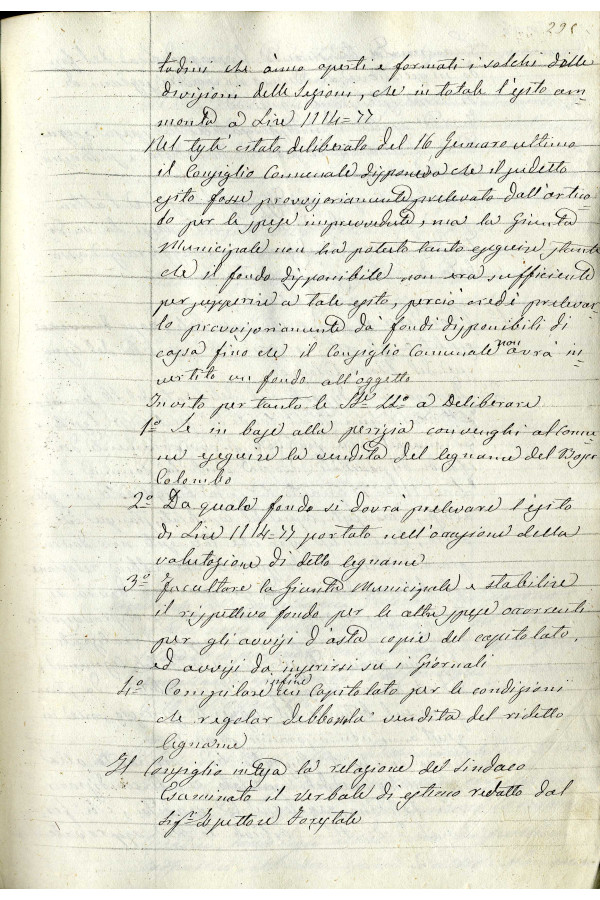 295
tadini che ànno aperti e formati i solchi delle
divizioni delle sezioni, che in totale l'esito am-
monta a Lire 1114=77
Nel citato deliberato del 16 Gennaro ultimo
il Consiglio Comunale disponeva che il sudetto
esito fosse provvisoriamente prelevato dall'artico-
lo per le spese imprevedute, ma la Giunta
Municipale non ha potuto tanto eseguire stante
che il fondo disponibile non era sufficiente
per supperire a tale esito, perciò credè prelevar-
lo provvisoriamente dà fondi disponibili di
cassa fino che il Consiglio Comunale non avrà in-
vertito un fondo all'oggetto
Invito per tanto le SS. LL. a Deliberare
1º Se in base alla perizia convenghi al Comu-
ne eseguire la vendita del legname del Bosco
Colombo
2º Da quale fondo si dovrà prelevare l'esito
di Lire 1114=77 portato nell'occasione della
valutazione di detto legname
3º Facultare la Giunta Municipale e stabilire
il rispettivo fondo per le altre spese occorrenti
per gli avvisi d'asta copie del capitolato,
ed avvisi da inserirsi su i Giornali
4º Compilare infine un Capitolato per le condizioni
che regolar debbano la vendita del ridetto
legname
Il Consiglio intesa la relazione del Sindaco
Esaminato il verbale di estimo redatto dal
Sigr Ispettore Forestale